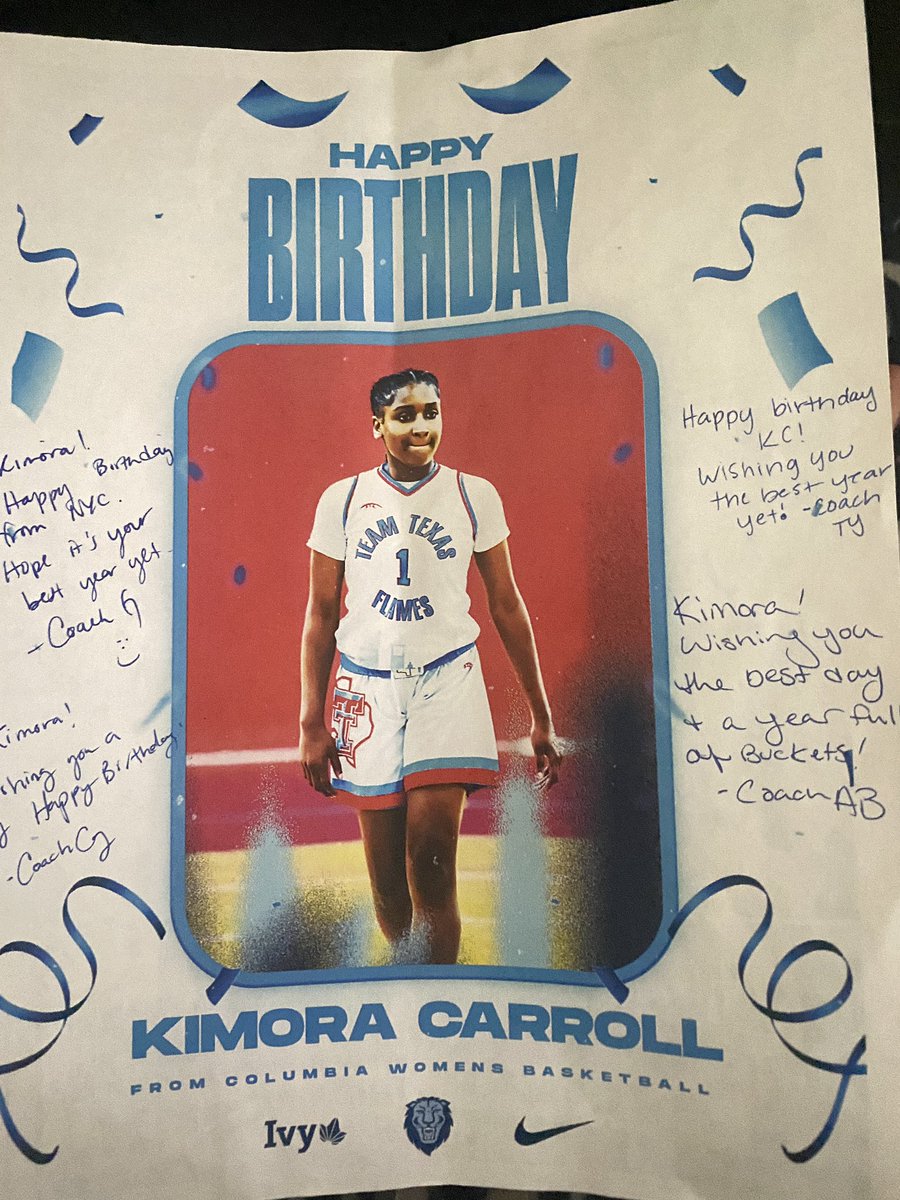 HAPPY
BIRTHDAY
Kimora!
Happy Birthday
from NYC.
Hope it's your
best year yet -
- Coach G
Kimora!
Wishing you a
Happy Birthday!
- Coach Cy
Happy birthday
KC!
Wishing you
the best year
yet! - Coach
TY
Kimora!
Wishing you
the best day
+ a year full
of Buckets!
- Coach AB
TEAM TEXAS
1
FLAMES
TT
KIMORA CARROLL
FROM COLUMBIA WOMENS BASKETBALL
Ivy